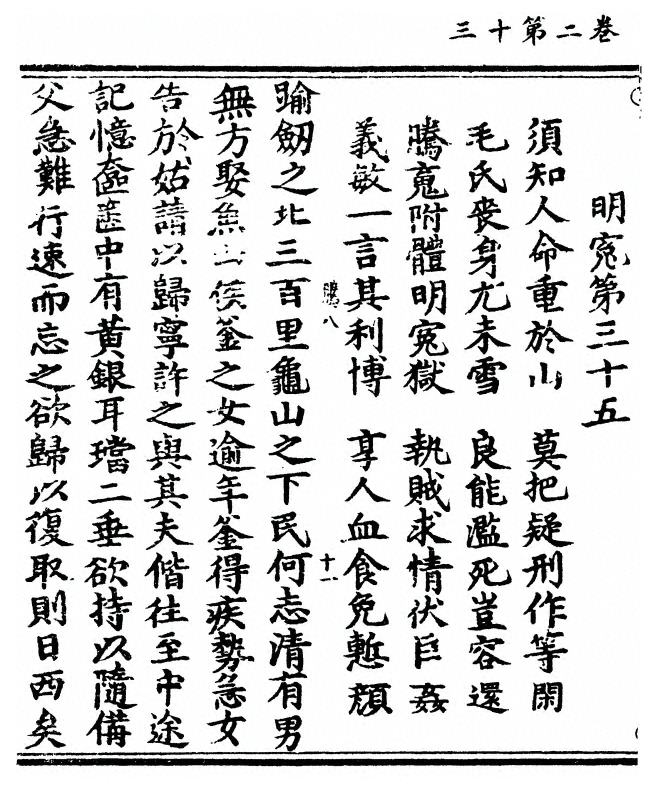 卷二第十三
明冤第三十五
須知人命重於山　莫把疑刑作等閑
毛氏喪身尤未雪　良能濫死豈容還
附體明冤獄　執賊求情伏巨姦
義敏一言其利博　享人血食免慙顏
八　十一
踰劒之北三百里龜山之下民何志清有男
無方娶魚山侯釜之女逾年釜得疾勢急女
告於姑請以歸寧許之與其夫偕往至中途
記憶奩中有黃銀耳璫二垂欲持以隨備
父急難行速而忘之欲歸以復取則日西矣